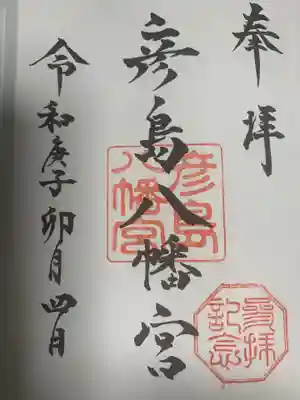 奉拝
彦島八幡宮
彦島八幡宮
参拝記念
令和庚子卯月四日